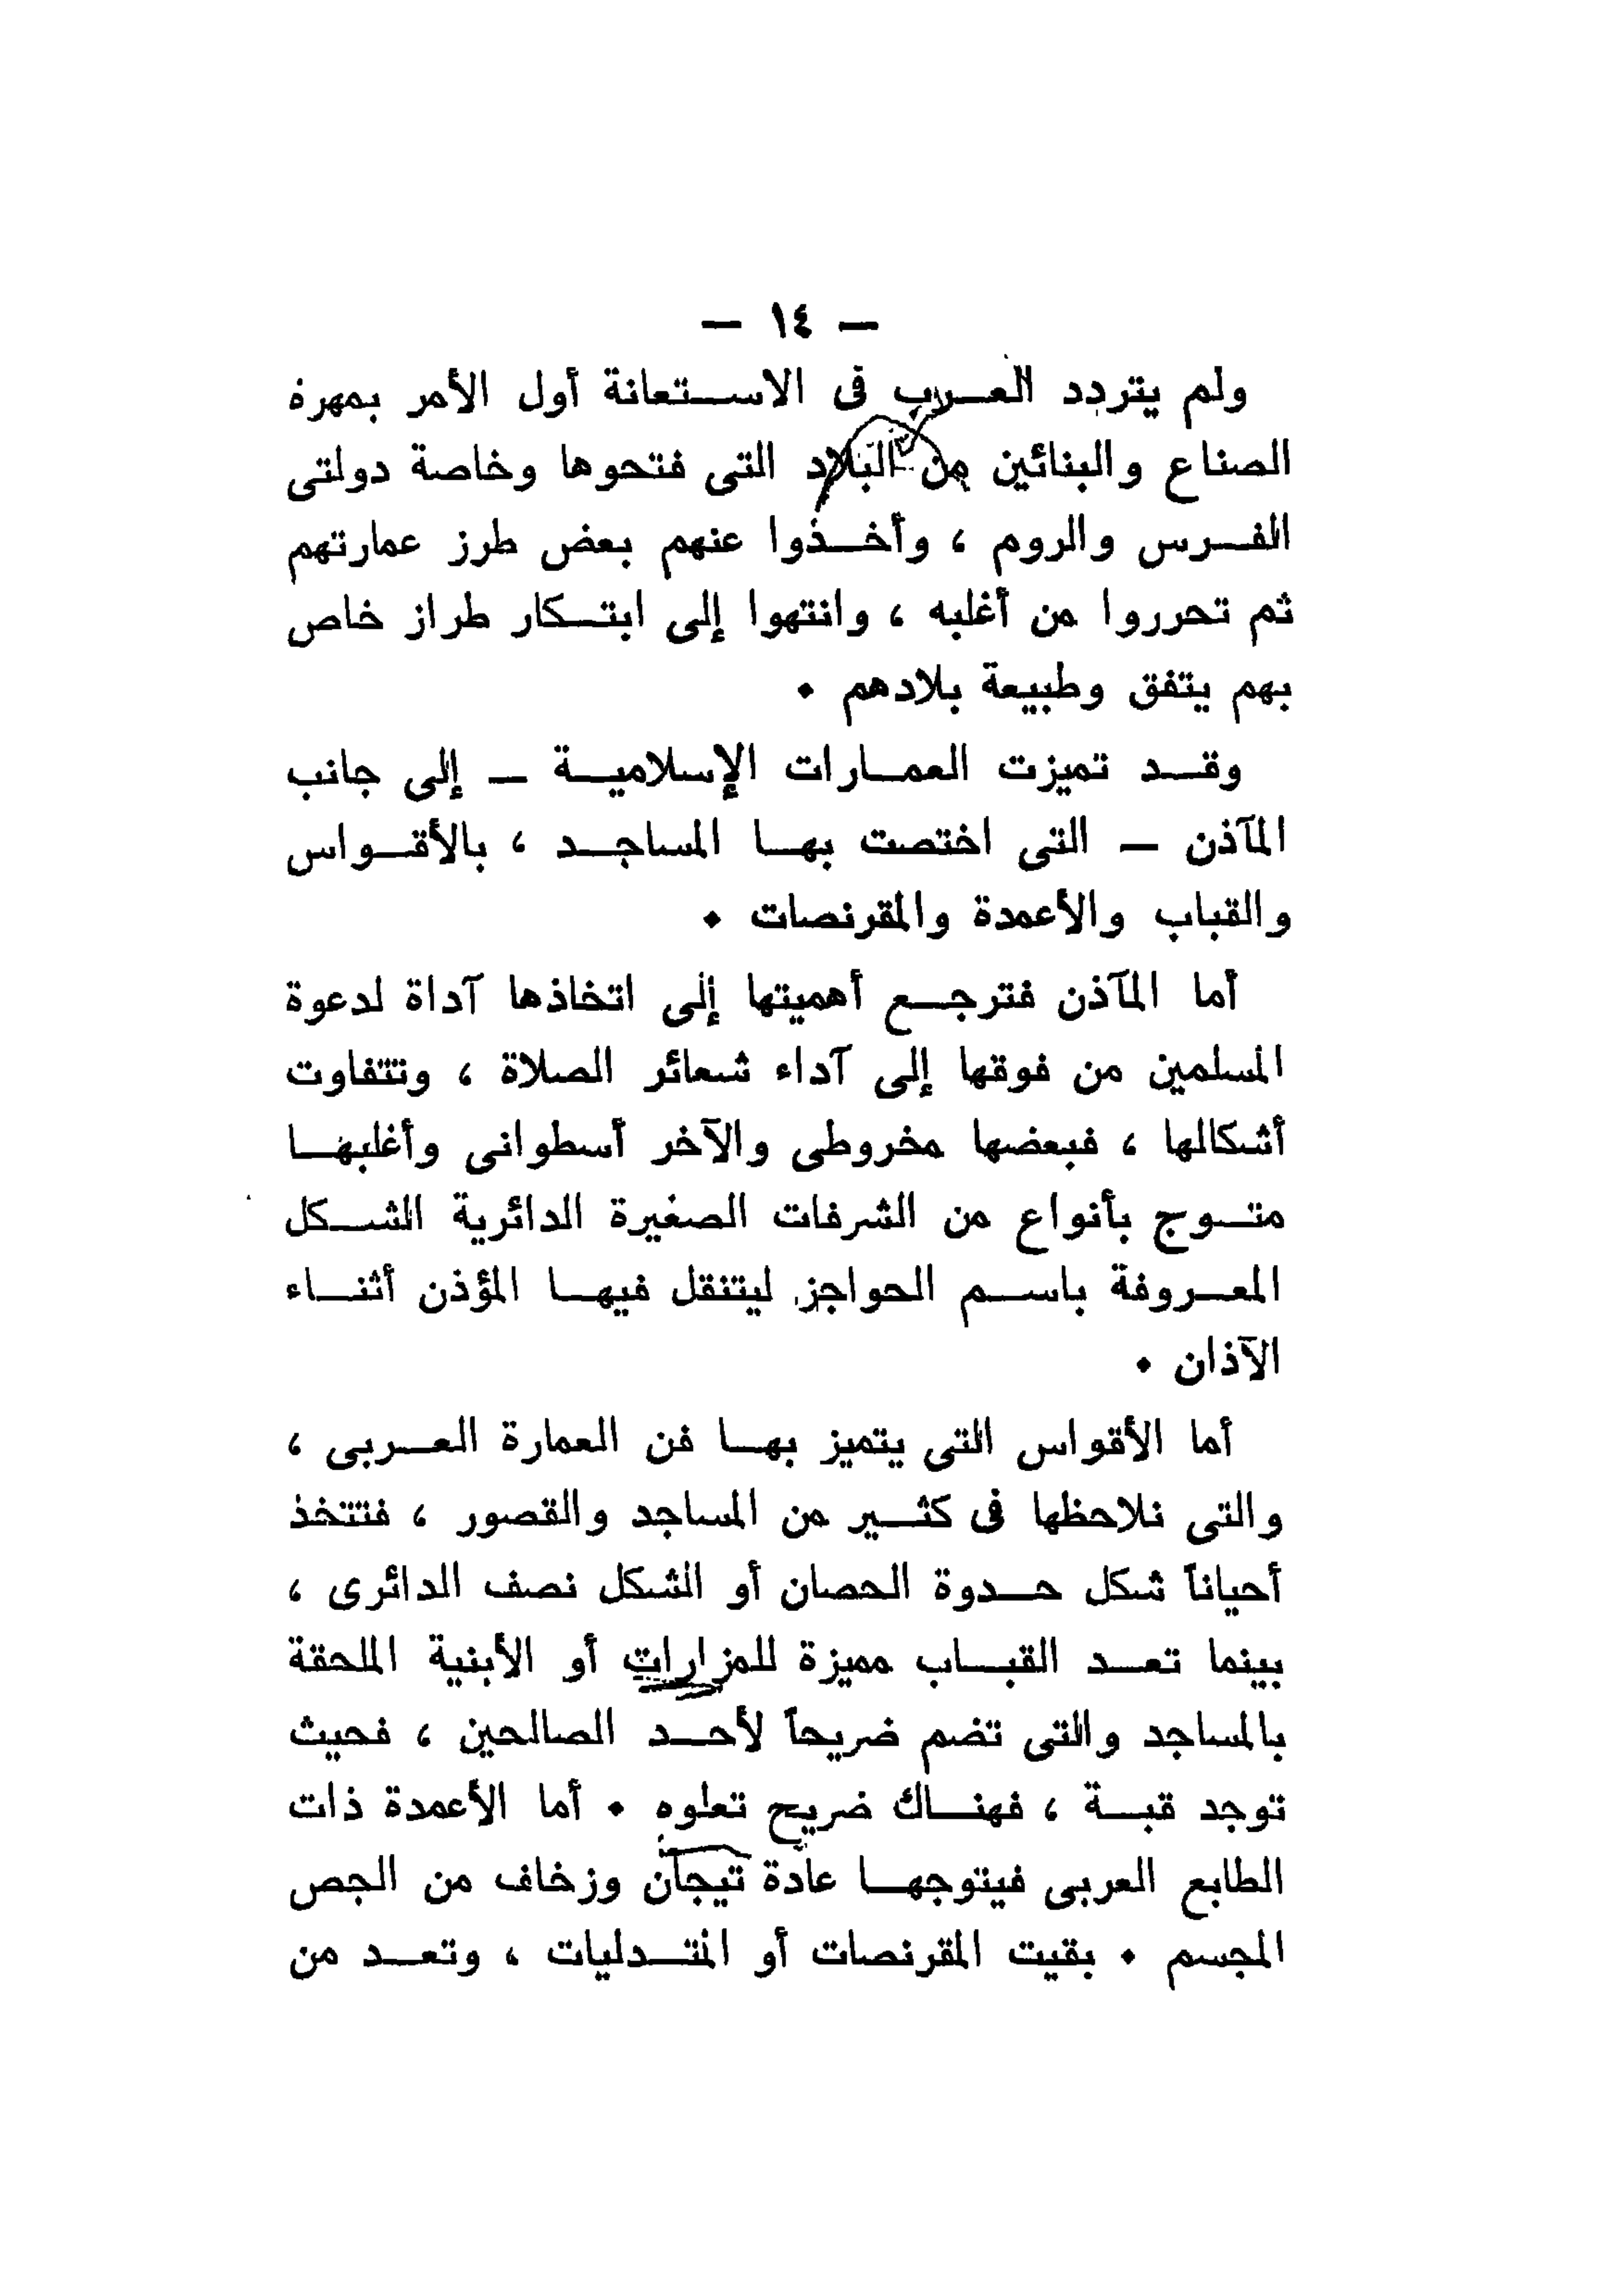 — ١٤ —
ولم يتردد العرب فى الاستعانة أول الأمر بمهرة
الصناع والبنائين من البلاد التى فتحوها وخاصة دولتى
الفرس والروم ، وأخذوا عنهم بعض طرز عمارتهم
ثم تحرروا من أغلبه ، وانتهوا إلى ابتكار طراز خاص
بهم يتفق وطبيعة بلادهم .
وقد تميزت العمارات الإسلامية — إلى جانب
المآذن — التى اختصت بها المساجد ، بالأقواس
والقباب والأعمدة والمقرنصات .
أما المآذن فترجع أهميتها إلى اتخاذها آداة لدعوة
المسلمين من فوقها إلى آداء شعائر الصلاة ، وتتفاوت
أشكالها ، فبعضها مخروطى والآخر أسطوانى وأغلبها
متوج بأنواع من الشرفات الصغيرة الدائرية الشكل
المعروفة باسم الحواجز ليتنقل فيها المؤذن أثناء
الآذان .
أما الأقواس التى يتميز بها فن العمارة العربى ،
والتى نلاحظها فى كثير من المساجد والقصور ، فتتخذ
أحياناً شكل حدوة الحصان أو الشكل نصف الدائرى ،
بينما تعد القباب مميزة للمزارات أو الأبنية الملحقة
بالمساجد والتى تضم ضريحاً لأحد الصالحين ، فحيث
توجد قبة ، فهناك ضريح تعلوه . أما الأعمدة ذات
الطابع العربى فيتوجها عادة تيجان وزخاف من الجص
المجسم . بقيت المقرنصات أو المتدليات ، وتعد من